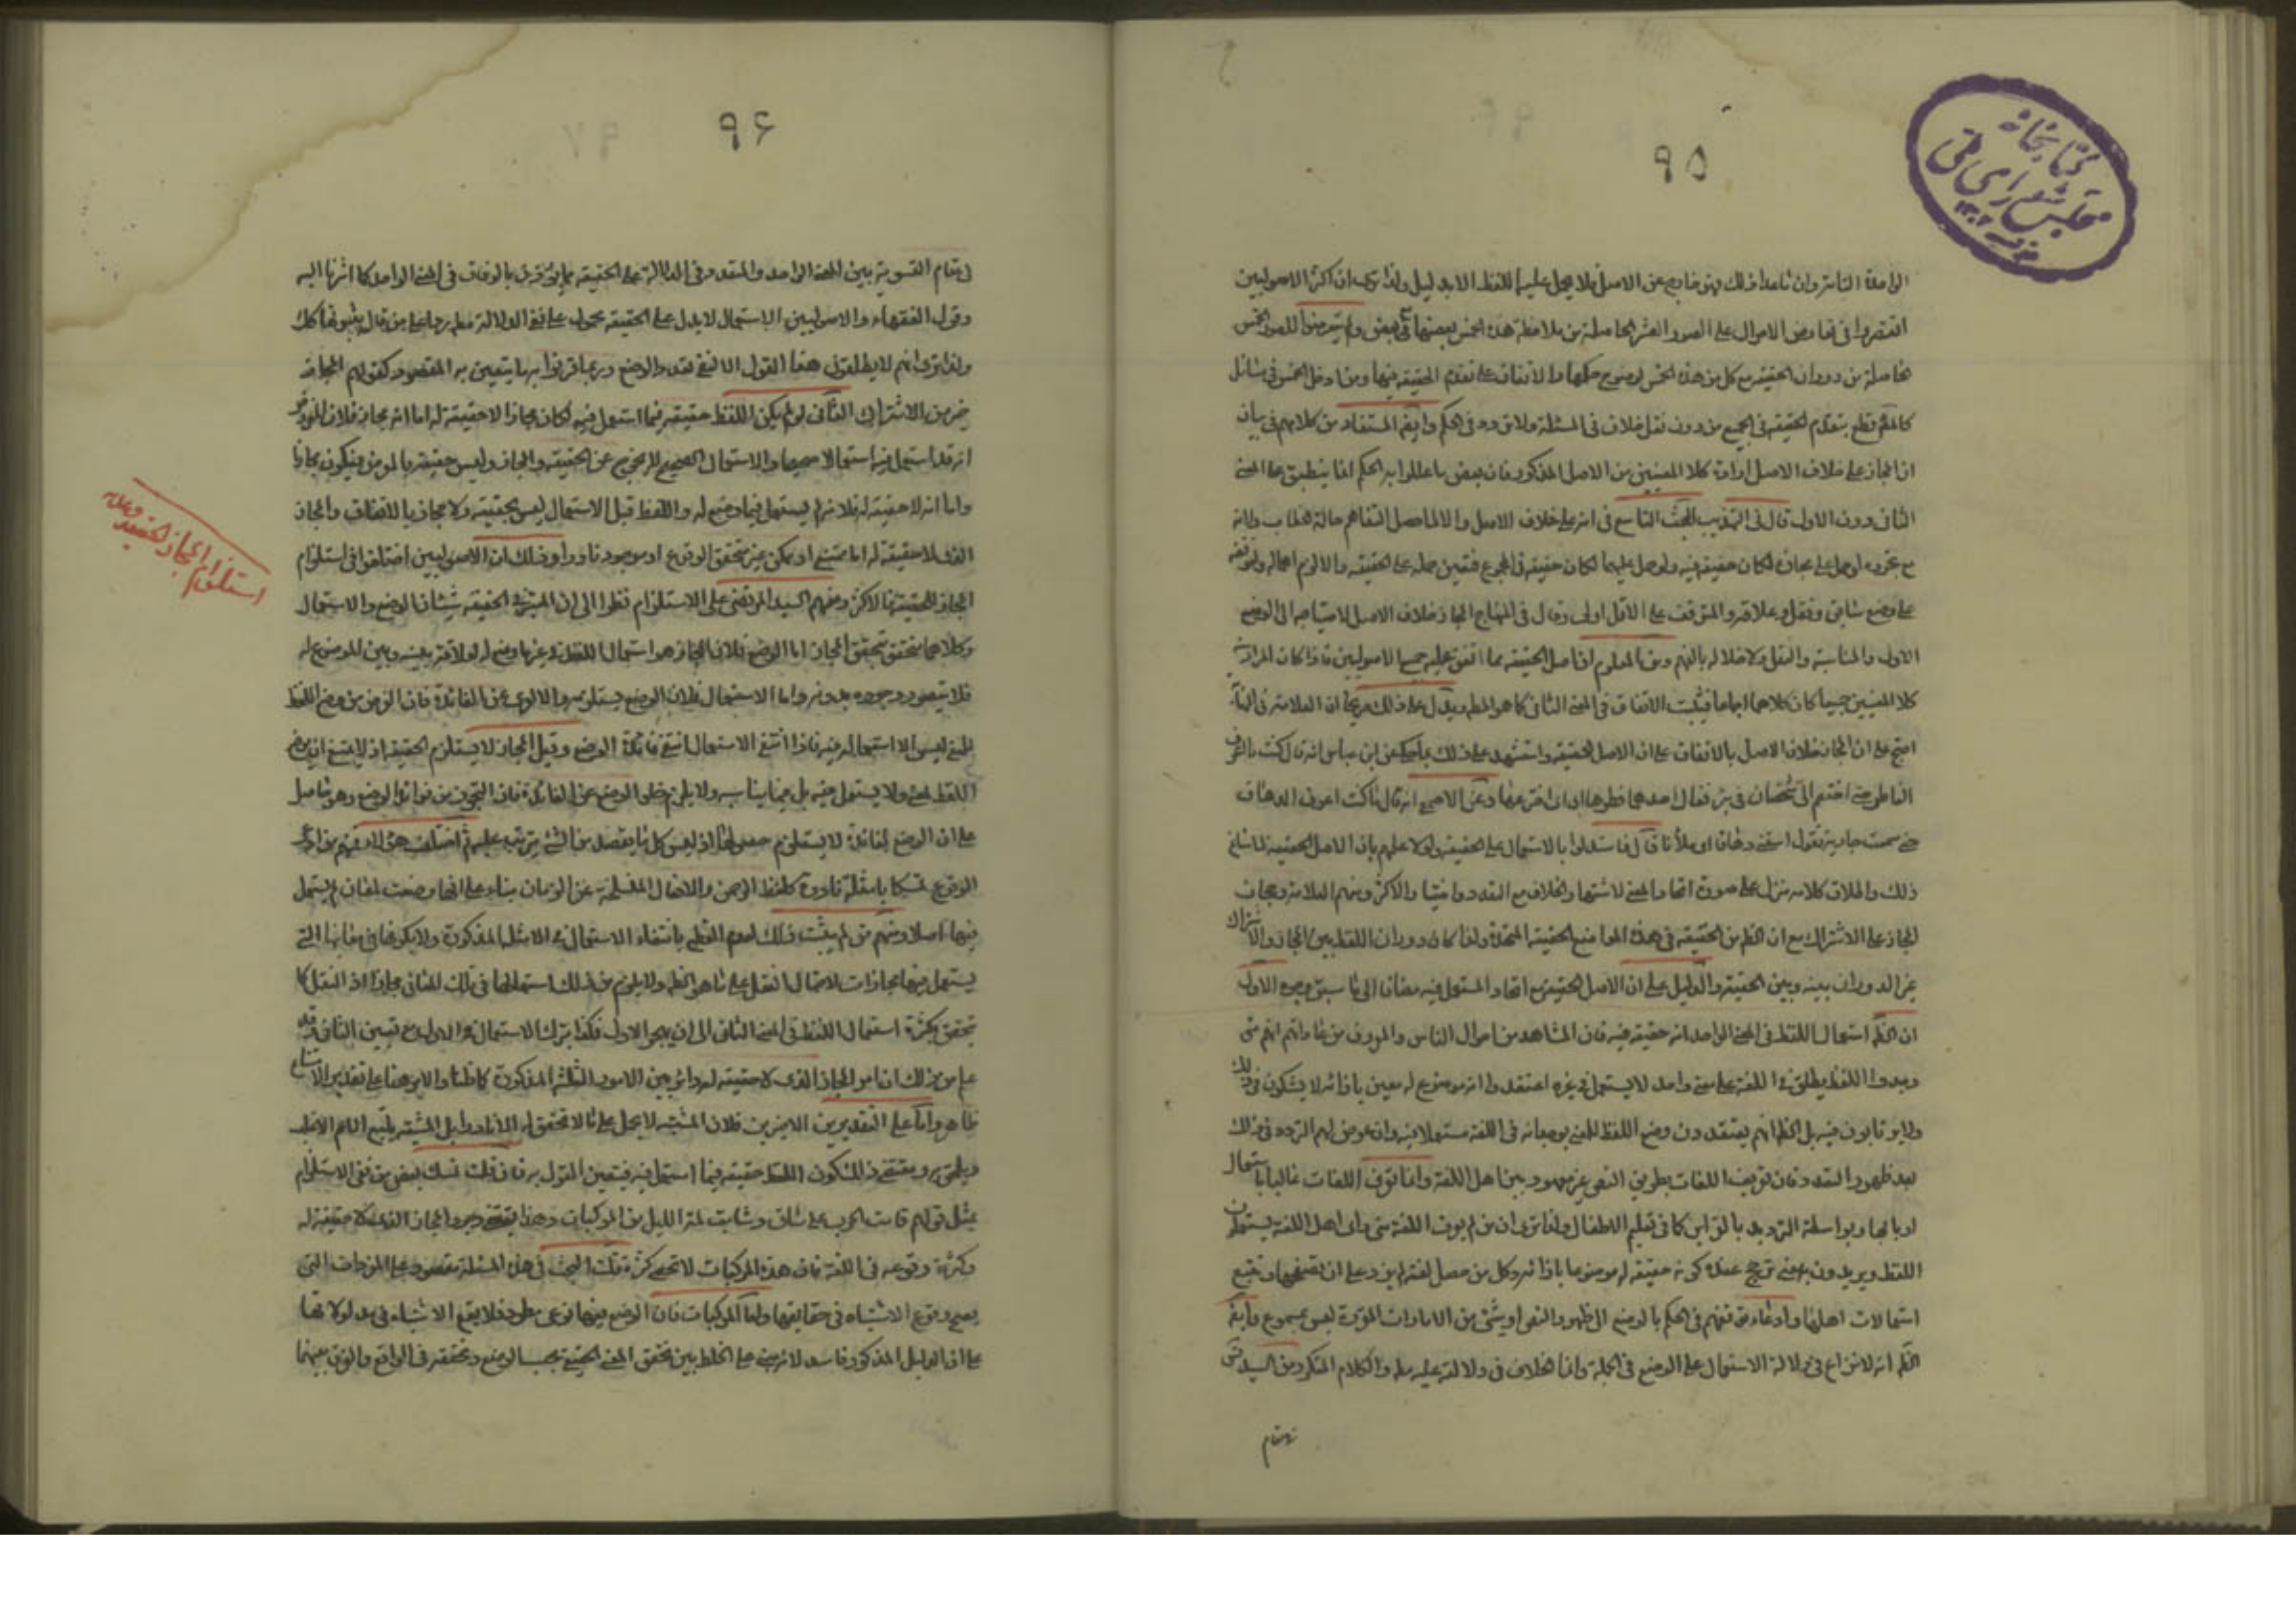 ۹۵
کتابخانه
مجلس شورای ملی
الواحدة الثابتة وان ما عدا ذلك فهو خارج عن الاصل فلا يحمل عليه اللفظ الا بدليل ولذا ترى ان اكثر الاصوليين
اقتصروا فى تعارض الاحوال على الصور العشر الحاصلة من ملاحظة هذه الخمس بعضها مع بعض ولم يتعرضوا للصور الخمس
الحاصلة من دوران الحقيقة مع كل من هذه الخمس لوضوح حكمها والاتفاق على تقديم الحقيقة فيها ومن ادخل الخمس فى المسائل
قطع بتقديم الحقيقة فى الجميع من دون نقل خلاف فى المسئلة ولا تردد فى الحكم وايضا المستفاد من كلامهم فى بيان
ان المجاز على خلاف الاصل ارادة كلا المعنيين من الاصل المذكور فان بعض ما عللوا به الحكم انما ينطبق على المعنى
الثانى دون الاول قال فى التهذيب البحث التاسع فى انه على خلاف الاصل والا لما حصل التفاهم حالة الخطاب ولانه
مع تجرده لو حمل على مجازه لكان حقيقة فيه ولو حمل عليهما لكان حقيقة فى المجموع فتعين حمله على الحقيقة والا لزم اهماله ولتوقفه
على وضع سابق ونقل وعلاقة والمتوقف على الاقل اولى وقال فى المنهاج المجاز خلاف الاصل لاحتياجه الى الوضع
الاول والمناسبة والنقل ولاخلاله بالفهم ومن المعلوم ان اصل الحقيقة مما اتفق عليه جميع الاصوليين فاذا كان المراد به
كلا المعنيين جميعا كان كلاهما اجماعا فيثبت الاتفاق فى المعنى الثانى كما هو المطلوب ويدل على ذلك صريحا ان العلامة فى النهاية
احتج على ان المجاز خلاف الاصل بالاتفاق على ان الاصل الحقيقة واستشهد على ذلك بما حكى عن ابن عباس انه قال ما كنت اعرف
الفاطر حتى اختصم الى شخصان فى بئر فقال احدهما فطرها ابى اى اخترعها وعن الاصمعى انه قال ما كنت اعرف الدهاق
حتى سمعت جارية تقول اسقنى دهاقا اى ملأنا قال فاستدلوا بالاستعمال على الحقيقة ولولا علمهم بان الاصل الحقيقة لما ساغ
ذلك واطلاق كلامه منزل على صورة اتحاد المعنى لاشتهار الخلاف مع التعدد والاكثر ومنهم العلامة
المجاز على الاشتراك مع ان الظ من الحقيقة فى هذه المواضع الحقيقة المتحدة ولذا كان دوران اللفظ بين المجاز والاشتراك
غير الدوران بينه وبين الحقيقة والدليل على ان الاصل الحقيقة مع اتحاد المستعمل فيه مضافا الى ما سبق وجوه الاول
ان الظ استعمال اللفظ فى المعنى الواحد انه حقيقة فيه فان المشاهد من احوال الناس والمعروف من عاداتهم انهم متى
وجدوا اللفظ يطلق فى اللغة على معنى واحد لا يستعمل فى غيره اعتقدوا انه موضوع له معين بازائه لا يشكون فى ذلك
ولا يرتابون فيه بل الظ انهم يعتقدون وضع اللفظ للمعنى بوجدانه فى اللغة مستعملا فيه وان عرض لهم التردد فى ذلك
بعد ظهور التعدد فان تعريف اللغات بطريق النص غير معهود بين اهل اللغة وانما تعرف اللغات غالبا باستعمال
اربابها وبواسطة الترديد بالقرائن كما فى تعليم الاطفال ولذا ترى ان من لم يعرف اللغة متى راى اهل اللغة يستعملون
اللفظ ويريدون به معنى ترجح عنده كونه حقيقة له موضوعا بازائه وكل من حصل لغة لم يزد على ان يتصفحها ويتتبع
استعمالات اهلها وادعاء توقفهم فى الحكم بالوضع الى ظهور النص او شىء من الامارات المؤثرة ليس بمسموع وايضا
الظ انه لا نزاع فى دلالة الاستعمال على الوضع فى الجملة وانما الخلاف فى دلالته عليه مطلقا والكلام المذكور من السيد
فى مقام
۹۶
فى مقام التسوية بين المعنى الواحد والمتعدد فى الدلالة على الحقيقة بما يؤذن بالوفاق فى المعنى الواحد كما اشرنا اليه
وقول الفقهاء والاصوليين الاستعمال لا يدل على الحقيقة محمول على نفى الدلالة مطلقا ردا على من قال بثبوتها كلك
ولذا ترى انهم لا يطلقون هذا القول الا لنفى تعدد الوضع وربما قرنوا به ما يتعين به المقصود كقولهم المجاز
خير من الاشتراك الثانى لو لم يكن اللفظ حقيقة فيما استعمل فيه لكان مجازا لا حقيقة له اما انه مجاز فلان المفروض
انه قد استعمل فيه استعمالا صحيحا والاستعمال الصحيح لا يخرج عن الحقيقة والمجاز وليس حقيقة بالفرض فيكون مجازا
واما انه لا حقيقة له فلانه لم يستعمل فيما وضع له واللفظ قبل الاستعمال ليس بحقيقة ولا مجاز بالاتفاق والمجاز
الذى لا حقيقة له اما ممتنع او ممكن غير متحقق الوقوع او موجود نادرا وذلك ان الاصوليين اختلفوا فى استلزام
المجاز للحقيقة فالاكثر ومنهم السيد المرتضى على الاستلزام نظرا الى ان المعتبر فى الحقيقة شيئان الوضع والاستعمال
وكلاهما متحقق بتحقق المجاز اما الوضع فلان المجاز هو استعمال اللفظ فى غير ما وضع له لعلاقة بينه وبين الموضوع له
فلا يتصور وجوده بدونه واما الاستعمال فلان الوضع يستلزمه والا لعرى عن الفائدة فان الغرض من وضع اللفظ
للمعنى ليس الا استعماله فيه فاذا انتفى الاستعمال انتفى فائدة الوضع وقيل المجاز لا يستلزم الحقيقة اذ لا يمتنع ان يوضع
اللفظ لمعنى ولا يستعمل فيه بل فيما يناسبه ولا يلزم خلو الوضع عن الفائدة فان التجوز من فوائد الوضع وهو حاصل
على ان الوضع لفائدة لا يستلزم حصولها اذ ليس كل ما يقصد من الشىء يترتب عليه ثم اختلف هؤلاء فمنهم من ادعى
الوقوع تمسكا بامثلة نادرة كلفظ الرحمن والافعال المنسلخة عن الزمان بناء على انها وضعت لمعان لم يستعمل
فيها اصلا ومنهم من لم يثبت ذلك لعدم القطع بانتفاء الاستعمال فى الامثلة المذكورة ولا يكونها فى معانيها التى
يستعمل فيها مجازات لاحتمال النقل على ما هو الظ ولا يلزم من ذلك استعمالها فى تلك المعانى مجازا اذ النقل كما
تحقق بكثرة استعمال اللفظ فى المعنى الثانى الى ان يهجر الاول فكذا بترك الاستعمال فى الاول مع تعيين الثانى وقد
علم من ذلك ان امر المجاز الذى لا حقيقة له دائر بين الامور الثلثة المذكورة كما ظنا والامر هنا على تقدير الامتناع
ظاهر واما على التقديرين الاخيرين فلان المشتبه لا يحمل على ما لا تحقق له الا نادرا بل المشتبه يتبع الاعم الاغلب
ويلحق به ومقتضى ذلك كون اللفظ حقيقة فيما استعمل فيه فيتعين القول به فان قلت تمسك بعض من نفى الاستلزام
بمثل قولهم قامت الحرب على ساق وشابت لمة الليل من المركبات وهذا يقتضى وجود المجاز الذى لا حقيقة له
وكثرة وقوعه فى اللغة فان هذه المركبات لا تحصى كثرة قلت البحث فى هذه المسئلة مقصود على المفردات التى
يصح وقوع الاشتباه فى حقايقها واما المركبات فان الوضع فيها نوعى مطرد فلا يقع الاشتباه فى مدلولاتها
على ان الدليل المذكور فاسد لانه مبنى على الخلط بين تحقق المعنى الحقيقى بحسب الوضع وتحققه فى الواقع والفرق بينهما
استلزام المجاز للحقيقة وعدمه